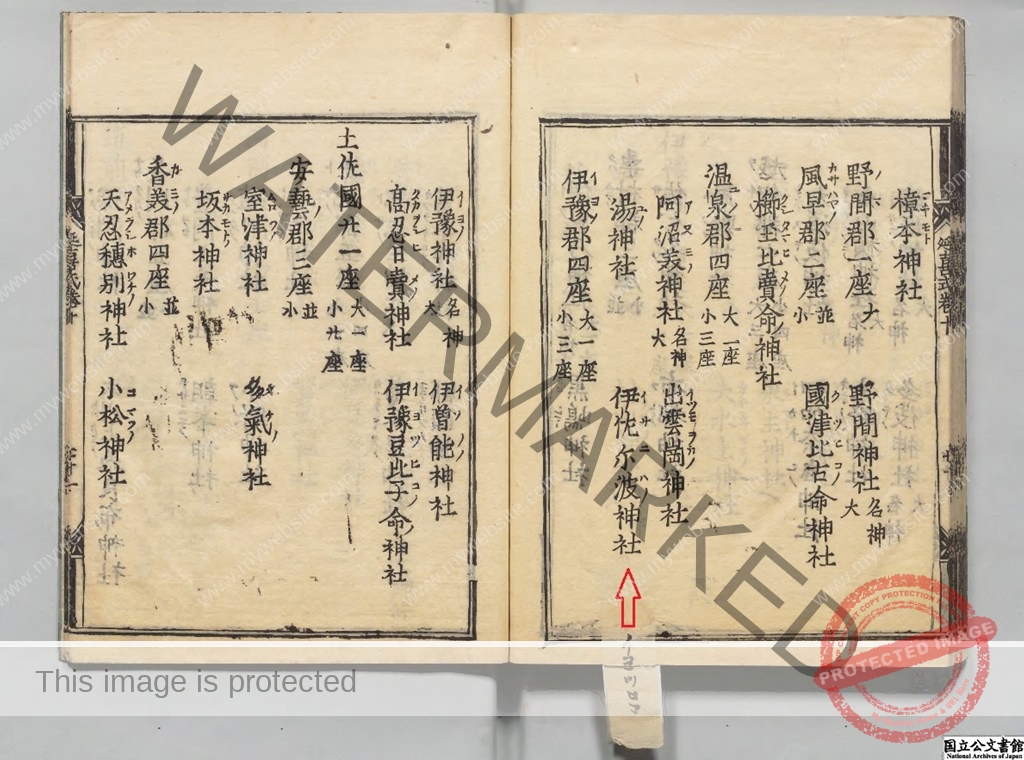 樟本神社
野間郡一座 大
野間神社 名神大
風早郡二座 並小
國津比古命神社
櫛玉比賣命神社
温泉郡四座 大一座 小三座
阿沼美神社 名神大
出雲崗神社
湯神社
伊佐尓波神社
伊豫郡四座 大一座 小三座
伊豫神社 名神大
伊曽能神社
高忍日賣神社
伊豫豆比子命神社
土佐國廿一座 大一座 小廿座
安藝郡三座 並小
室津神社
多氣神社
坂本神社
香美郡四座 並小
天忍穗別神社
小松神社
延喜式卷十
WATERMARKED
This image is protected
PROTECTED IMAGE
国立公文書館
National Archives of Japan
www.mywebsite.com